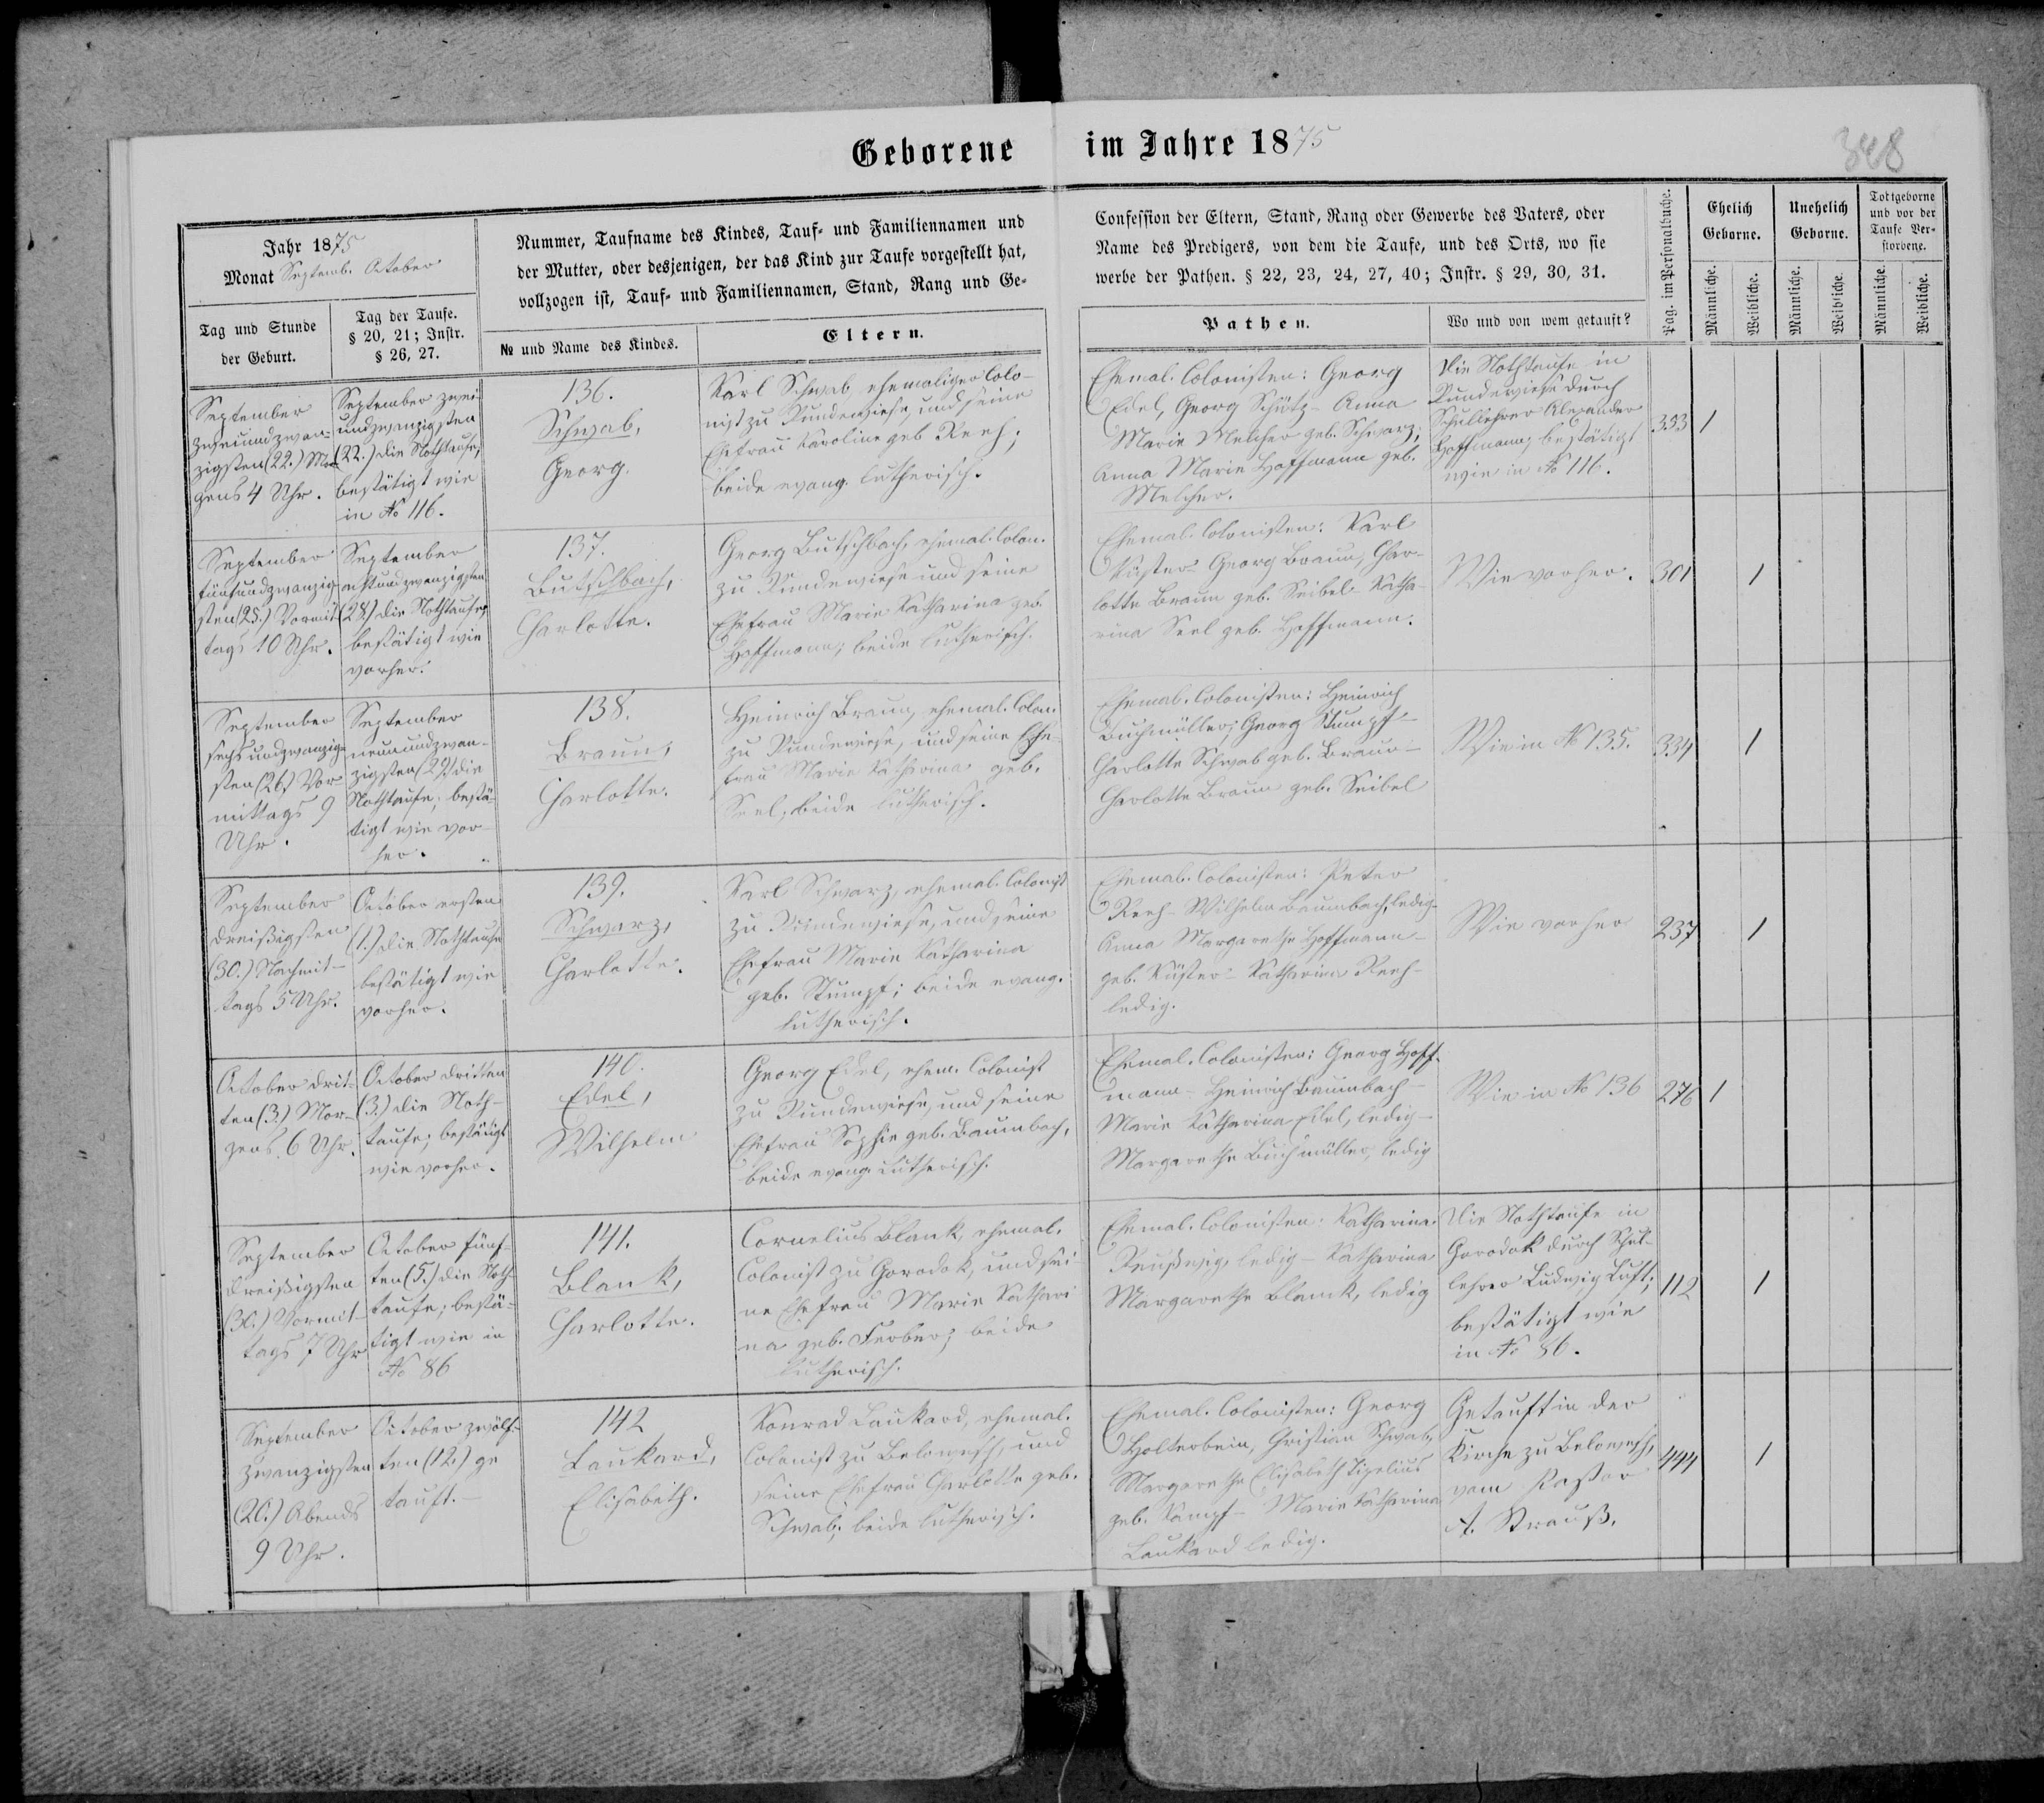 Geborene im Jahre 1875
348
Jahr 1875
Monat Septemb. October
Tag und Stunde
der Geburt.
Tag der Taufe.
§ 20, 21; Instr.
§ 26, 27.
Nummer, Taufname des Kindes, Tauf- und Familiennamen und
der Mutter, oder desjenigen, der das Kind zur Taufe vorgestellt hat,
vollzogen ist, Tauf- und Familiennamen, Stand, Rang und Ge-
№ und Name des Kindes.
Eltern.
Confession der Eltern, Stand, Rang oder Gewerbe des Vaters, oder
Name des Predigers, von dem die Taufe, und des Orts, wo sie
werbe der Pathen. § 22, 23, 24, 27, 40; Instr. § 29, 30, 31.
Pathen.
Wo und von wem getauft?
Pag. im Personalbuche.
Ehelich
Geborne.
Unehelich
Geborne.
Todtgeborne
und vor der
Taufe Ver-
storbene.
Männliche.
Weibliche.
Männliche.
Weibliche.
Männliche.
Weibliche.
September
zweiundzwan-
zigsten (22.) Mor-
gens 4 Uhr.
September zwei-
undzwanzigsten
(22.) die Nothtaufe,
bestätigt wie
in № 116.
136.
Schwab,
Georg.
Karl Schwab, ehemaliger Colo-
nist zu Rundewiese, und seine
Ehefrau Karoline geb. Reeh;
beide evang. lutherisch.
Ehemal. Colonisten: Georg
Edel, Georg Schütz - Anna
Marie Melcher geb. Schwarz;
Anna Marie Hoffmann geb.
Melcher.
Die Nothtaufe in
Rundewiese durch
Schullehrer Alexander
Hoffmann; bestätigt
wie in № 116.
353
1
September
fünfundzwanzig-
sten (25.) Vormit-
tags 10 Uhr.
September
achtundzwanzigsten
(28.) die Nothtaufe,
bestätigt wie
vorher.
137.
Butschbach,
Charlotte.
Georg Butschbach, ehemal. Colon.
zu Rundewiese und seine
Ehefrau Marie Katharina geb.
Hoffmann; beide lutherisch.
Ehemal. Colonisten: Karl
Küster - Georg Braun, Char-
lotte Braun geb. Seibel - Katha-
rina Seel geb. Hoffmann.
Wie vorher.
301
1
September
sechsundzwanzig-
sten (26.) Vor-
mittags 9
Uhr.
September
neunundzwan-
zigsten (29.) die
Nothtaufe, bestä-
tigt wie vor-
her.
138.
Braun,
Charlotte.
Heinrich Braun, ehemal. Colon.
zu Rundewiese, und seine Ehe-
frau Marie Katharina geb.
Seel, beide lutherisch.
Ehemal. Colonisten: Heinrich
Buchmüller, Georg Stumpf -
Charlotte Schwab geb. Braun -
Charlotte Braun geb. Seibel
Wie in № 135.
334
1
September
dreißigsten
(30.) Nachmit-
tags 5 Uhr.
October ersten
(1.) die Nothtaufe
bestätigt wie
vorher.
139.
Schwarz,
Charlotte.
Karl Schwarz, ehemal. Colonist
zu Rundewiese, und seine
Ehefrau Marie Katharina
geb. Stumpf; beide evang.
lutherisch.
Ehemal. Colonisten: Peter
Reeh - Wilhelm Baumbach, ledig -
Anna Margarethe Hoffmann -
geb. Küster - Katharina Reeh -
ledig.
Wie vorher
237
1
October drit-
ten (3.) Mor-
gens 6 Uhr.
October dritten
(3.) die Noth-
taufe; bestätigt
wie vorher.
140.
Edel,
Wilhelm
Georg Edel, ehem. Colonist
zu Rundewiese, und seine
Ehefrau Sophie geb. Baumbach,
beide evang. lutherisch.
Ehemal. Colonisten: Georg Hoff-
mann - Heinrich Baumbach -
Marie Katharina Edel, ledig -
Margarethe Buchmüller, ledig
Wie in № 136
276
1
September
dreißigsten
(30.) Vormit-
tags 7 Uhr
October fünf-
ten (5.) die Noth-
taufe; bestä-
tigt wie in
№ 86
141.
Blank,
Charlotte.
Cornelius Blank, ehemal.
Colonist zu Gorodok, und sei-
ne Ehefrau Marie Kathari-
na geb. Ferber; beide
lutherisch.
Ehemal. Colonisten: Katharina
ledig - Katharina
Margarethe Blank, ledig
Die Nothtaufe in
Gorodok durch Schul-
lehrer Ludwig Luft;
bestätigt wie
in № 86.
112
1
September
zwanzigsten
(20.) Abends
9 Uhr.
October zwölf-
ten (12.) ge-
tauft.-
142
Laukard,
Elisabeth.
Konrad Laukard, ehemal.
Colonist zu Belowesch, und
seine Ehefrau Charlotte geb.
Schwab; beide lutherisch.
Ehemal. Colonisten: Georg
Holterbein, Christian Schwab,
Margarethe Elisabeth
geb. Kampf - Marie Katharina
Laukard ledig.
Getauft in der
Kirche zu Belowesch,
vom Pastor
A. Strauß.
444
1